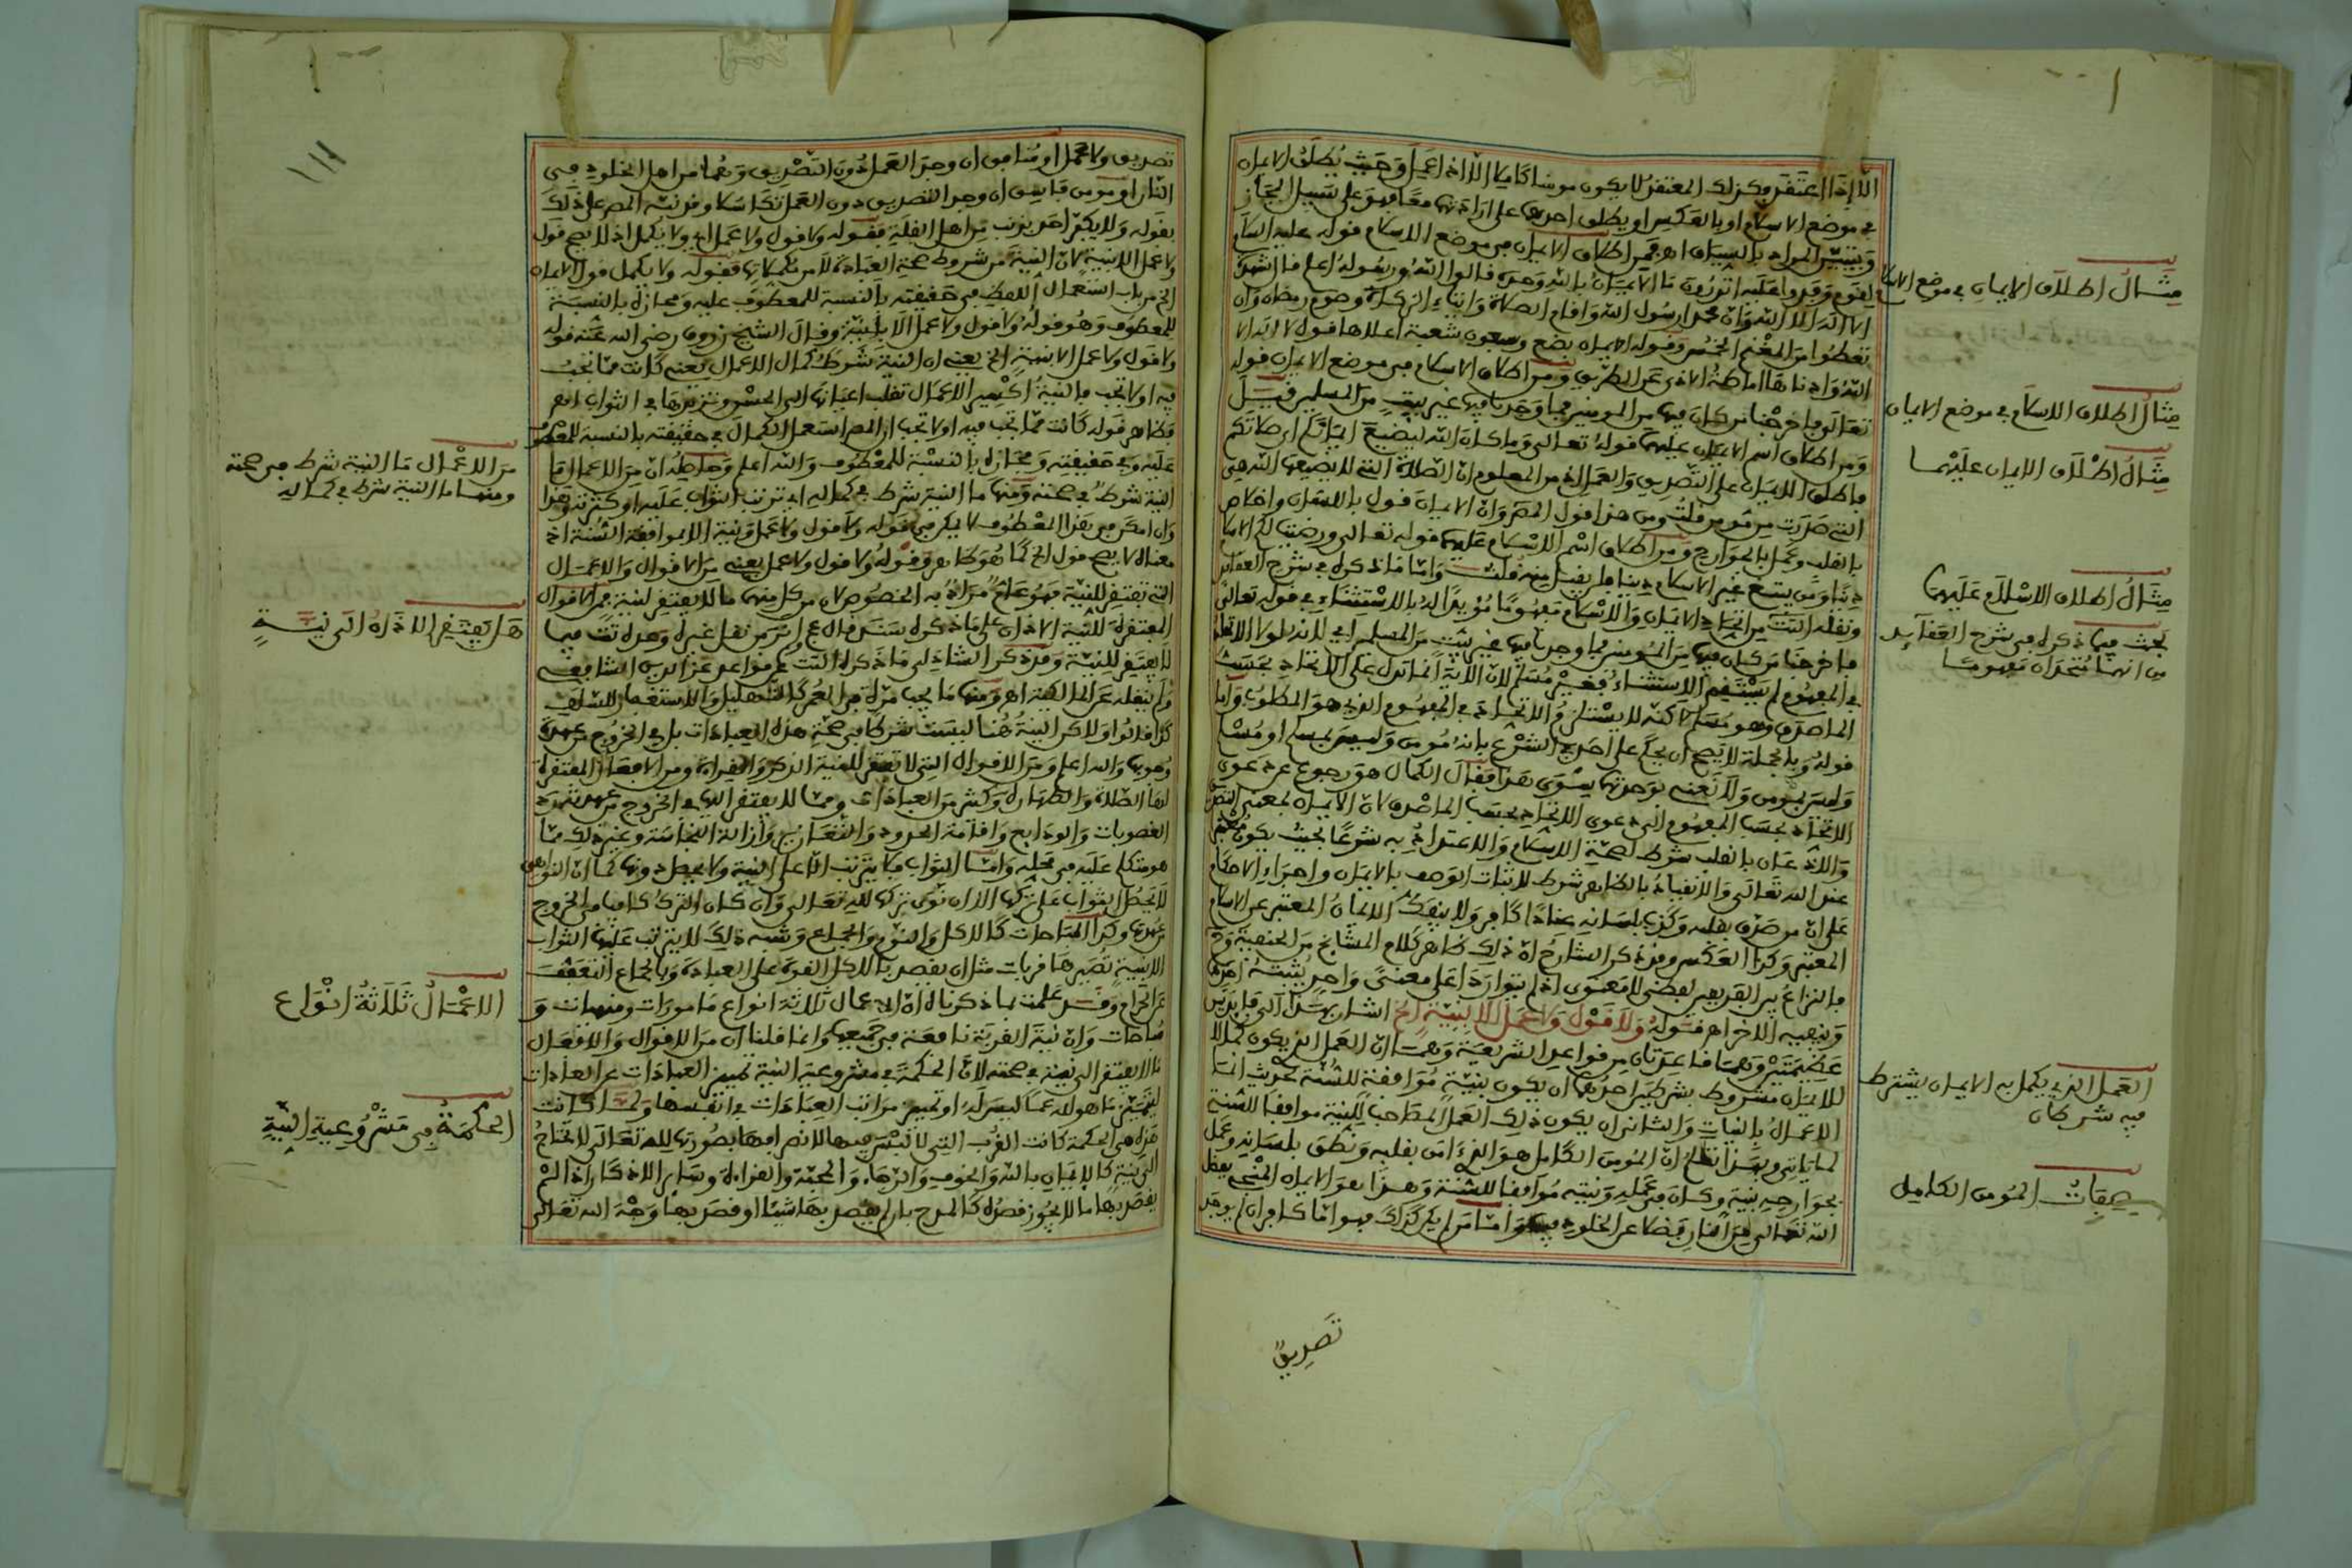 الا إذا اعتقد وكذلك المعتقد لا يكون مومنا كاملا الا اذا عمل وحيث يطلق الايمان
في موضع الاسلام او بالعكس او يطلق احدهما على ارادتهما معا فهو على سبيل المجاز
ويتبين المراد بالسياق اهـ فمن اطلاق الايمان في موضع الاسلام قوله عليه السلام
لقوم وفدوا عليه اتدرون ما الايمان بالله وحده قالوا الله ورسوله اعلم قال شهادة
ان لا اله الا الله وان محمدا رسول الله واقام الصلاة وايتاء الزكاة وصوم رمضان وان
تعطوا من المغنم الخمس وقوله الايمان بضع وسبعون شعبة اعلاها قول لا اله الا
الله وادناها اماطة الاذى عن الطريق ومن اطلاق الاسلام في موضع الايمان قوله
تعالى فاخرجنا من كان فيها من المومنين فما وجدنا فيها غير بيت من المسلمين
ومن اطلاق اسم الايمان عليهما قوله تعالى وما كان الله ليضيع ايمانكم اي صلاتكم
فاطلق الايمان على التصديق والعمل اذ من المعلوم ان الصلاة التي لا يضيعها الله هي
التي صدرت من مومن قلت ومن هذا قول المصنف وان الايمان قول باللسان واخلاص
بالقلب وعمل بالجوارح ومن اطلاق اسم الاسلام عليهما قوله تعالى ورضيت لكم الاسلام
دينا ومن يبتغ غير الاسلام دينا فلن يقبل منه قلت واما ما ذكره في شرح العقائد
ونقله التت من اتحاد الايمان والاسلام مفهوما مؤيدا له بالاستثناء في قوله تعالى
فاخرجنا من كان فيها من المومنين فما وجدنا فيها غير بيت من المسلمين
في المفهوم لم يستقم الاستثناء فغير مسلم لان الاية انما تدل على الاتحاد بحسب
الماصدق وهو مسلم لاكنه لا يستلزم الاتحاد في المفهوم الذي هو المطلوب واما
قوله وبالجملة لا يصح ان يحكم على احد في الشرع بانه مومن وليس بمسلم او مسلم
وليس بمومن ولا نعني بوحدتهما سوى هذا فقال الكمال هو رجوع عن دعوى
الاتحاد بحسب المفهوم الى دعوى الاتحاد بحسب الماصدق لان الايمان بمعنى التصديق
والاذعان بالقلب شرط لصحة الاسلام والاعتداد به شرعا بحيث يكون
عند الله تعالى والانقياد بالظاهر شرط لاثبات الوصف بالايمان واجراء الاحكام
على ان من صدق بقلبه وكذب بلسانه عنادا كافر ولا ينفك الايمان المعتبر عن الاسلام
المعتبر وكذا العكس وقد ذكر الشارح ان ذلك ظاهر كلام المشايخ من الحنفية
فالنزاع بين الفريقين لفظي لا معنوي اذ لم يتواردا على معنى واحد يثبته احدهما
وينفيه الاخر اهـ قوله ولا قول ولا عمل الا بنية الخ اشار بهذا الى قاعدتين
عظيمتين وهما قاعدتان من قواعد الشريعة وهما ان العمل الذي يكون كمالا
للايمان مشروط بشرطين احدهما ان يكون بنية موافقة للسنة لحديث انما
الاعمال بالنيات والثاني ان يكون ذلك العمل المصاحب للنية موافقا للسنة
لما ياتي وبهذا تعلم ان المومن الكامل هو الذي امن بقلبه ونطق بلسانه وعمل
بجوارحه بنية وكان في عمله ونيته موافقا للسنة وهذا هو الايمان المنجي بفضل
الله تعالى من النار فضلا عن الخلود فيها واما من لم يكن كذلك فهو اما كافر ان لم يوجد
تصديق
مثال اطلاق الايمان في موضع الاسلام
مثال اطلاق الاسلام في موضع الايمان
مثال اطلاق الايمان عليهما
مثال اطلاق الاسلام عليهما
بحث فيما ذكره في شرح العقايد
من انهما متحدان مفهوما
العمل الذي يكمل به الايمان يشترط
فيه شرطان
صفات المومن الكامل
تصديق ولا عمل او منافق ان وجد العمل دون التصديق وهما من اهل الخلود في
النار او مومن فاسق ان وجد التصديق دون العمل تكاسلا وقد نبه المص على ذلك
بقوله ولا يكفر احد بذنب من اهل القبلة فقوله ولا قول ولا عمل اي ولا يكمل اذ لا يصح قول
ولا عمل الا بنية لان النية من شروط صحة العبادة لا من مكملاتها فقوله ولا يكمل قول الايمان
الخ من باب استعمال اللفظ في حقيقته بالنسبة للمعطوف عليه ومجازه بالنسبة
للمعطوف وهو قوله ولا قول ولا عمل الا بنية وقال الشيخ زروق رضي الله عنه قوله
ولا قول ولا عمل الا بنية الخ يعني ان النية شرط كمال الاعمال يعني كانت مما تجب
فيه او لا تجب فالنية اكسير الاعمال تقلب اعيانها الى الحسن وتزيدها في الثواب اهـ
فظاهر قوله كانت مما تجب فيه او لا تجب ان المص استعمل الكمال في حقيقته بالنسبة للمعطوف
عليه وفي حقيقته ومجازه بالنسبة للمعطوف والله اعلم وحاصله ان من الاعمال ما
النية شرط في صحته ومنها ما النية شرط في كماله اي ترتب الثواب عليه او كثرته وهذا
وان امكن في هذا المعطوف لا يمكن في قوله ولا قول ولا عمل ونية الا بموافقة السنة اذ
معناه لا يصح قول الخ كما هو ظاهر وقوله ولا قول ولا عمل يعني من الاقوال والاعمال
التي تفتقر للنية فهو عام مراد به الخصوص لان من كل منهما ما لا يفتقر لنية فمن الاقوال
المفتقرة للنية الاذان على ما ذكره سند قال عج ولم ار من نقل غيره وعده تت فيما
لا يفتقر للنية وقد ذكر الشاذلي ما ذكره التت في قواعد عز الدين الشافعي
ولم ينقله عن المالكية اهـ ومنها ما يجب مرة في العمر كالتهليل والاستغفار للسلف
كذا قالوا ولاكن النية هنا ليست شرطا في صحة هذه العبادات بل في الخروج من عهدة
وجوبها والله اعلم ومن الاقوال التي لا تفتقر للنية الذكر والقراءة ومن الافعال المفتقرة
لها الصلاة والطهارة وكثير من العبادات ومما لا يفتقر اليها في الخروج من عهدته رد
الغصوبات والودايع واقامة الحدود والتعازير وازالة النجاسة وغير ذلك مما
هو متكلم عليه في محله واما الثواب فلا يترتب الا على النية ولا يحصل دونها كما ان النواهي
لا يحصل الثواب على تركها الا ان نوى بتركها لله تعالى وان كان الترك كافيا في الخروج
عن عهدتها وكذا المباحات كالاكل والنوم والجماع وشبه ذلك لا يترتب عليها الثواب
الا بنية تصيرها قربات مثل ان يقصد بالاكل القوة على العبادة وبالجماع التعفف
عن الحرام وقد علمت بما ذكرناه ان الاعمال ثلاثة انواع مامورات ومنهيات و
مباحات وان نية القربة نافعة في جميعها وانما قلنا ان من الاقوال والافعال
ما لا يفتقر الى نية في صحته لان الحكمة في مشروعية النية تمييز العبادات عن العادات
ليتميز ما هو لله عما ليس له او تمييز مراتب العبادات في انفسها ولما كانت
هذه هي الحكمة كانت القرب التي لا لبس فيها لانصرافها بصورتها لله تعالى لا تحتاج
الى نية كالايمان بالله والخوف والرجاء والمحبة والقراءة وساير الاذكار اذا لم
يقصد بها ما لا يجوز قصده كالمدح بل لم يقصد بها شيئا او قصد بها وجه الله تعالى
من الاعمال ما النية شرط في صحة
ومنها ما النية شرط في كماله
هل يفتقر الاذان الى نية
الاعمال ثلاثة انواع
الحكمة في مشروعية النية